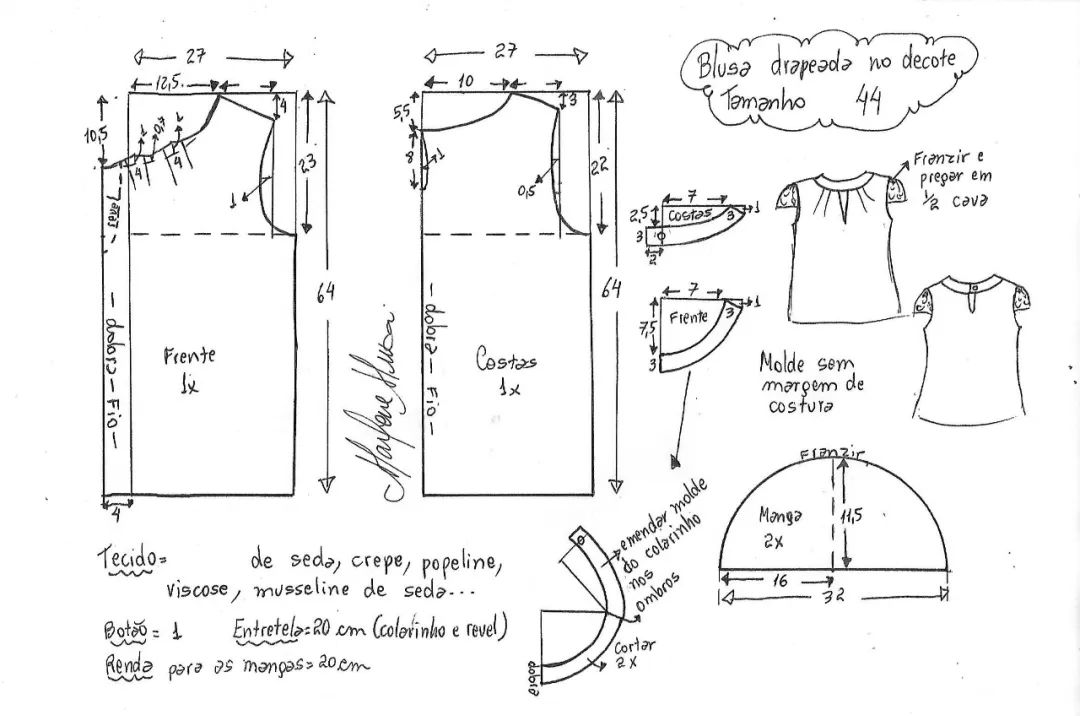 Blusa drapeada no decote
Tamanho 44
27
12,5
4
10,5
1
0,7
1
4
4
1
23
7 anos
64
dobra - Fio
Frente
1x
4
27
10
3
5,5
8
1
0,5
22
64
dobra - Fio
Costas
1x
Marlene Mukai
7
2,5
Costas
3
1
3
2
7
1
7,5
Frente
3
3
Franzir e
pregar em
1/2 cava
Molde sem
margem de
costura
Franzir
Manga
2x
11,5
16
32
emendar molde
do colarinho
nos
ombros
Cortar
2x
dobra
Tecido=
de seda, crepe, popeline,
viscose, musseline de seda...
Botão = 1
Entretela=20 cm (colarinho e revel)
Renda para as mangas=20cm